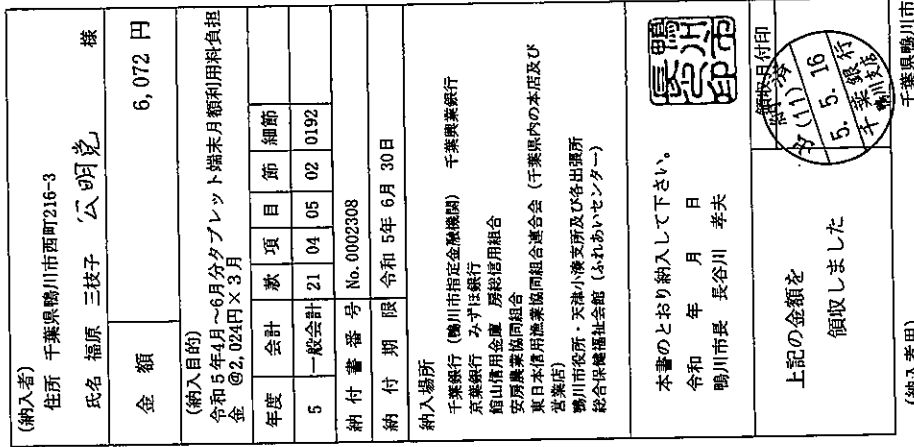 (納入者)
住所 千葉県鴨川市西町216-3
氏名 福原 三枝子 公明党 様
金 額 6,072 円
(納入目的)
令和5年4月~6月分タブレット端末月額利用料負担
金 @2,024円×3月
年度 会計 款 項 目 節 細節
5 一般会計 21 04 05 02 0192
納付書番号 No.0002308
納付期限 令和 5年 6月 30日
納入場所
千葉銀行(鴨川市指定金融機関) 千葉興業銀行
京葉銀行 みずほ銀行
館山信用金庫 房総信用組合
安房農業協同組合
東日本信用漁業協同組合連合会(千葉県内の本店及び
営業店)
鴨川市役所・天津小湊支所及び各出張所
総合保健福祉会館(ふれあいセンター)
本書のとおり納入して下さい。
令和 年 月 日
鴨川市長 長谷川 孝夫
鴨川市長之印
上記の金額を
領収しました
領収日付印
(11)
5. 5. 16
千葉銀行
鴨川支店
(納入者用)
千葉県鴨川市